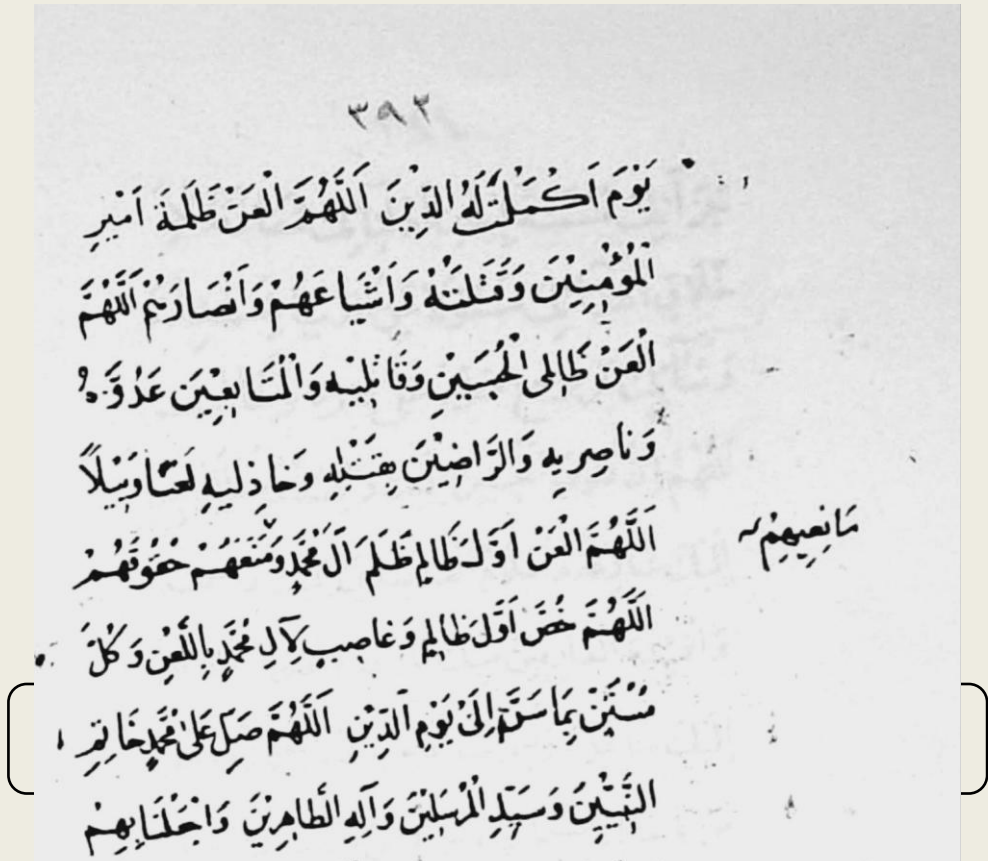 ٣٩٢
يَوْمَ اَكْمَلْتَ لَهُ الدِّينَ اَللّٰهُمَّ الْعَنْ ظَلَمَةَ اَمْيرِ
الْمُؤْمِنِيْنَ وَقَتَلَتَهُ وَاَشْيَاعَهُمْ وَاَنْصَارَهُمْ اَللّٰهُمَّ
الْعَنْ ظَالِمِى الْحُسَيْنِ وَقَاتِلِيْهِ وَالْمُتَابِعِيْنَ عَدُوَّهُ
وَنَاصِرِيهِ وَالرَّاضِيْنَ بِقَتْلِهِ وَخَاذِلِيهِ لَعْنًا وَبِيْلًا
اَللّٰهُمَّ الْعَنْ اَوَّلَ ظَالِمٍ ظَلَمَ اٰلَ مُحَمَّدٍ وَمَنَعَهُمْ حُقُوقَهُمْ
مَانِعِيهِمْ
اَللّٰهُمَّ خُصَّ اَوَّلَ ظَالِمٍ وَغَاصِبٍ لِاٰلِ مُحَمَّدٍ بِاللَّعْنِ وَكُلَّ
مُسْتَنٍّ بِمَا سَنَّ اِلىٰ يَوْمِ الدِّيْنِ اَللّٰهُمَّ صَلِّ عَلىٰ مُحَمَّدٍ خَاتِمِ
النَّبِيِّيْنَ وَسَيِّدِ الْمُرْسَلِيْنَ وَآلِهِ الطَّاهِرِيْنَ وَاجْعَلْنَا بِهِمْ